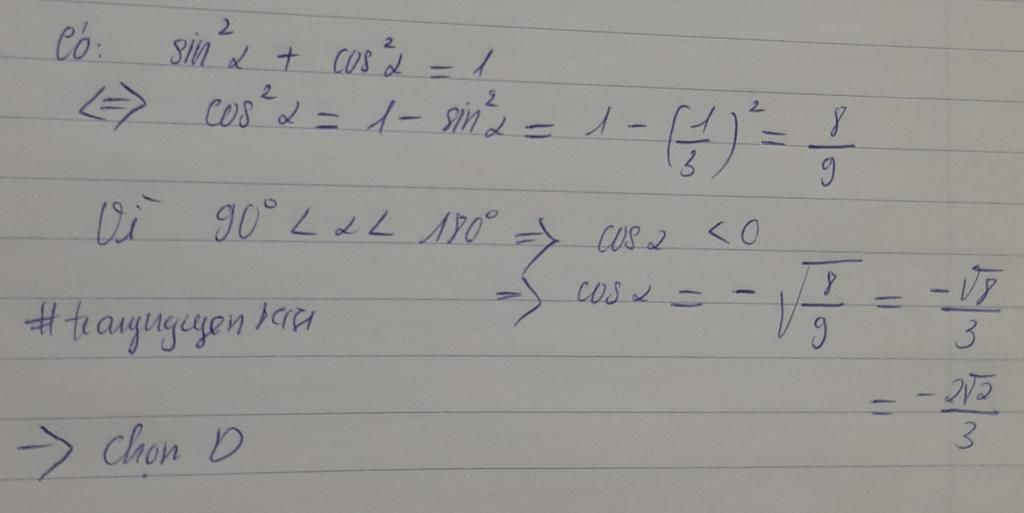 Có: sin²α + cos²α = 1
<=> cos²α = 1 - sin²α = 1 - (1/3)² = 8/9
Vì 90° < α < 180° => cosα < 0
=> cosα = -√(8/9) = -√8/3
= -2√2/3
-> Chọn D